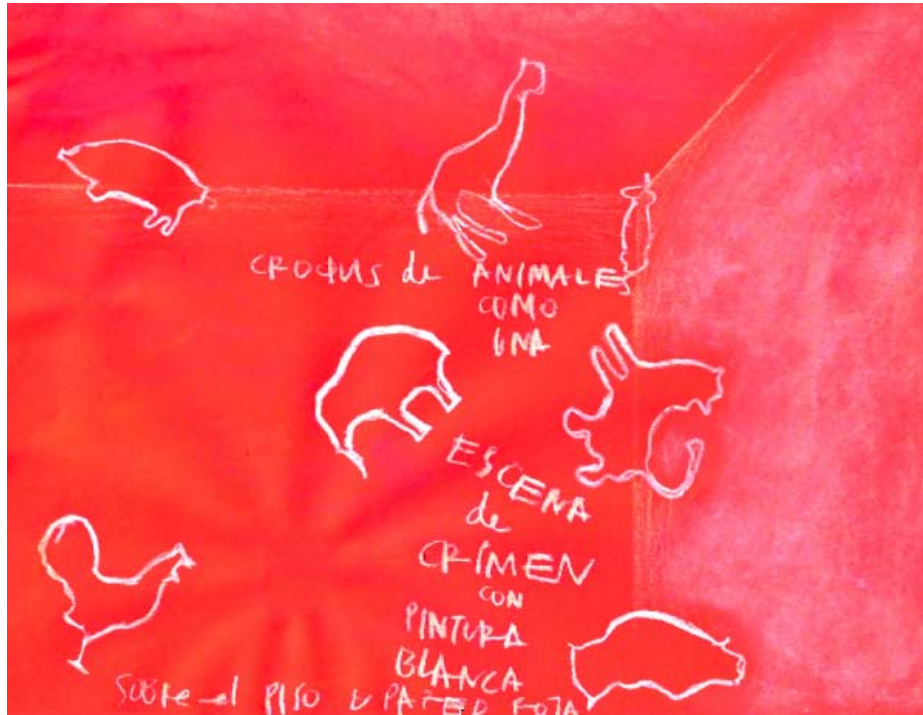 CROQUIS de ANIMALES
COMO
UNA
ESCENA
de
CRÍMEN
CON
PINTURA
BLANCA
SOBRE el PISO Y PARED ROJA